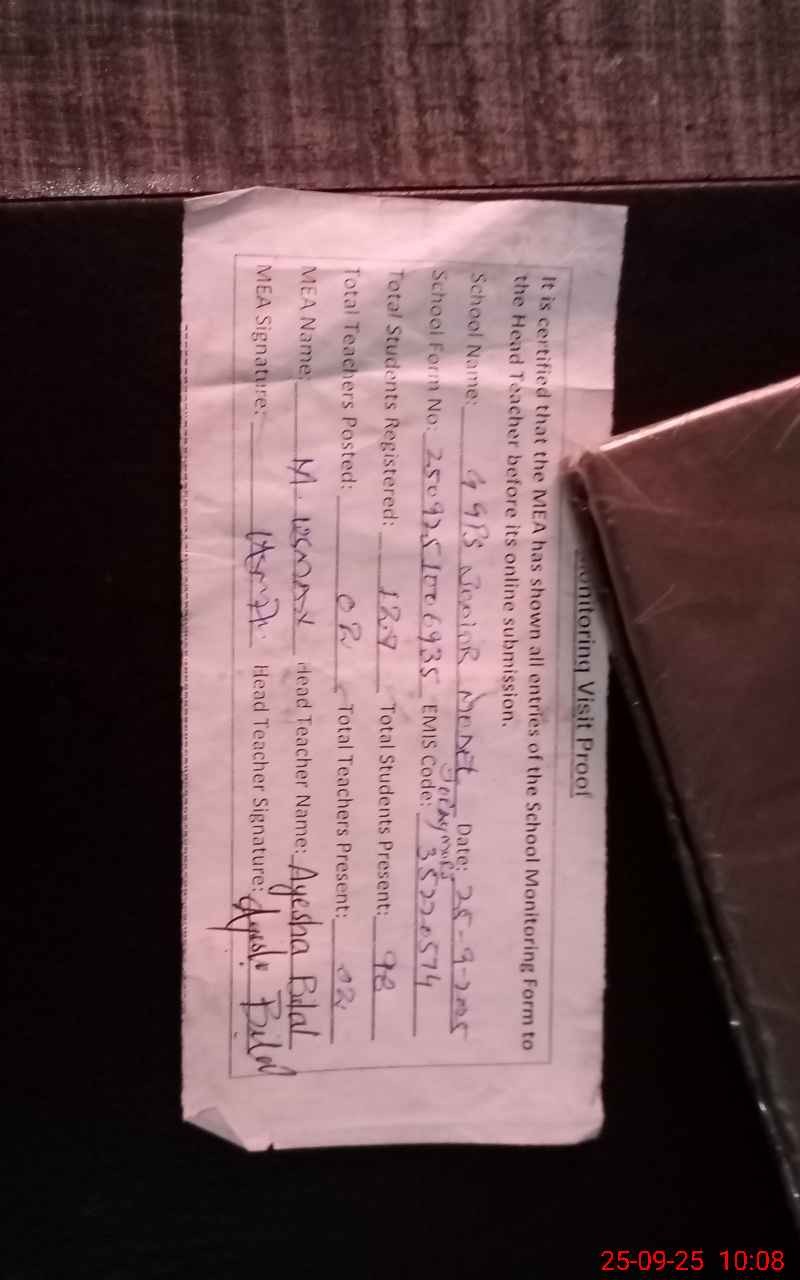 Monitoring Visit Proof
It is certified that the MEA has shown all entries of the School Monitoring Form to
the Head Teacher before its online submission.
School Name: GGPS Junior Model Date: 25-9-2025
School Form No: 2509251006935 EMIS Code: 35220574
Total Students Registered: 129 Total Students Present: 98
Total Teachers Posted: 02 Total Teachers Present: 02
MEA Name: M. USMAN Head Teacher Name: Ayesha Bilal
MEA Signature: Usman Head Teacher Signature: Ayesha Bilal
25-09-25 10:08